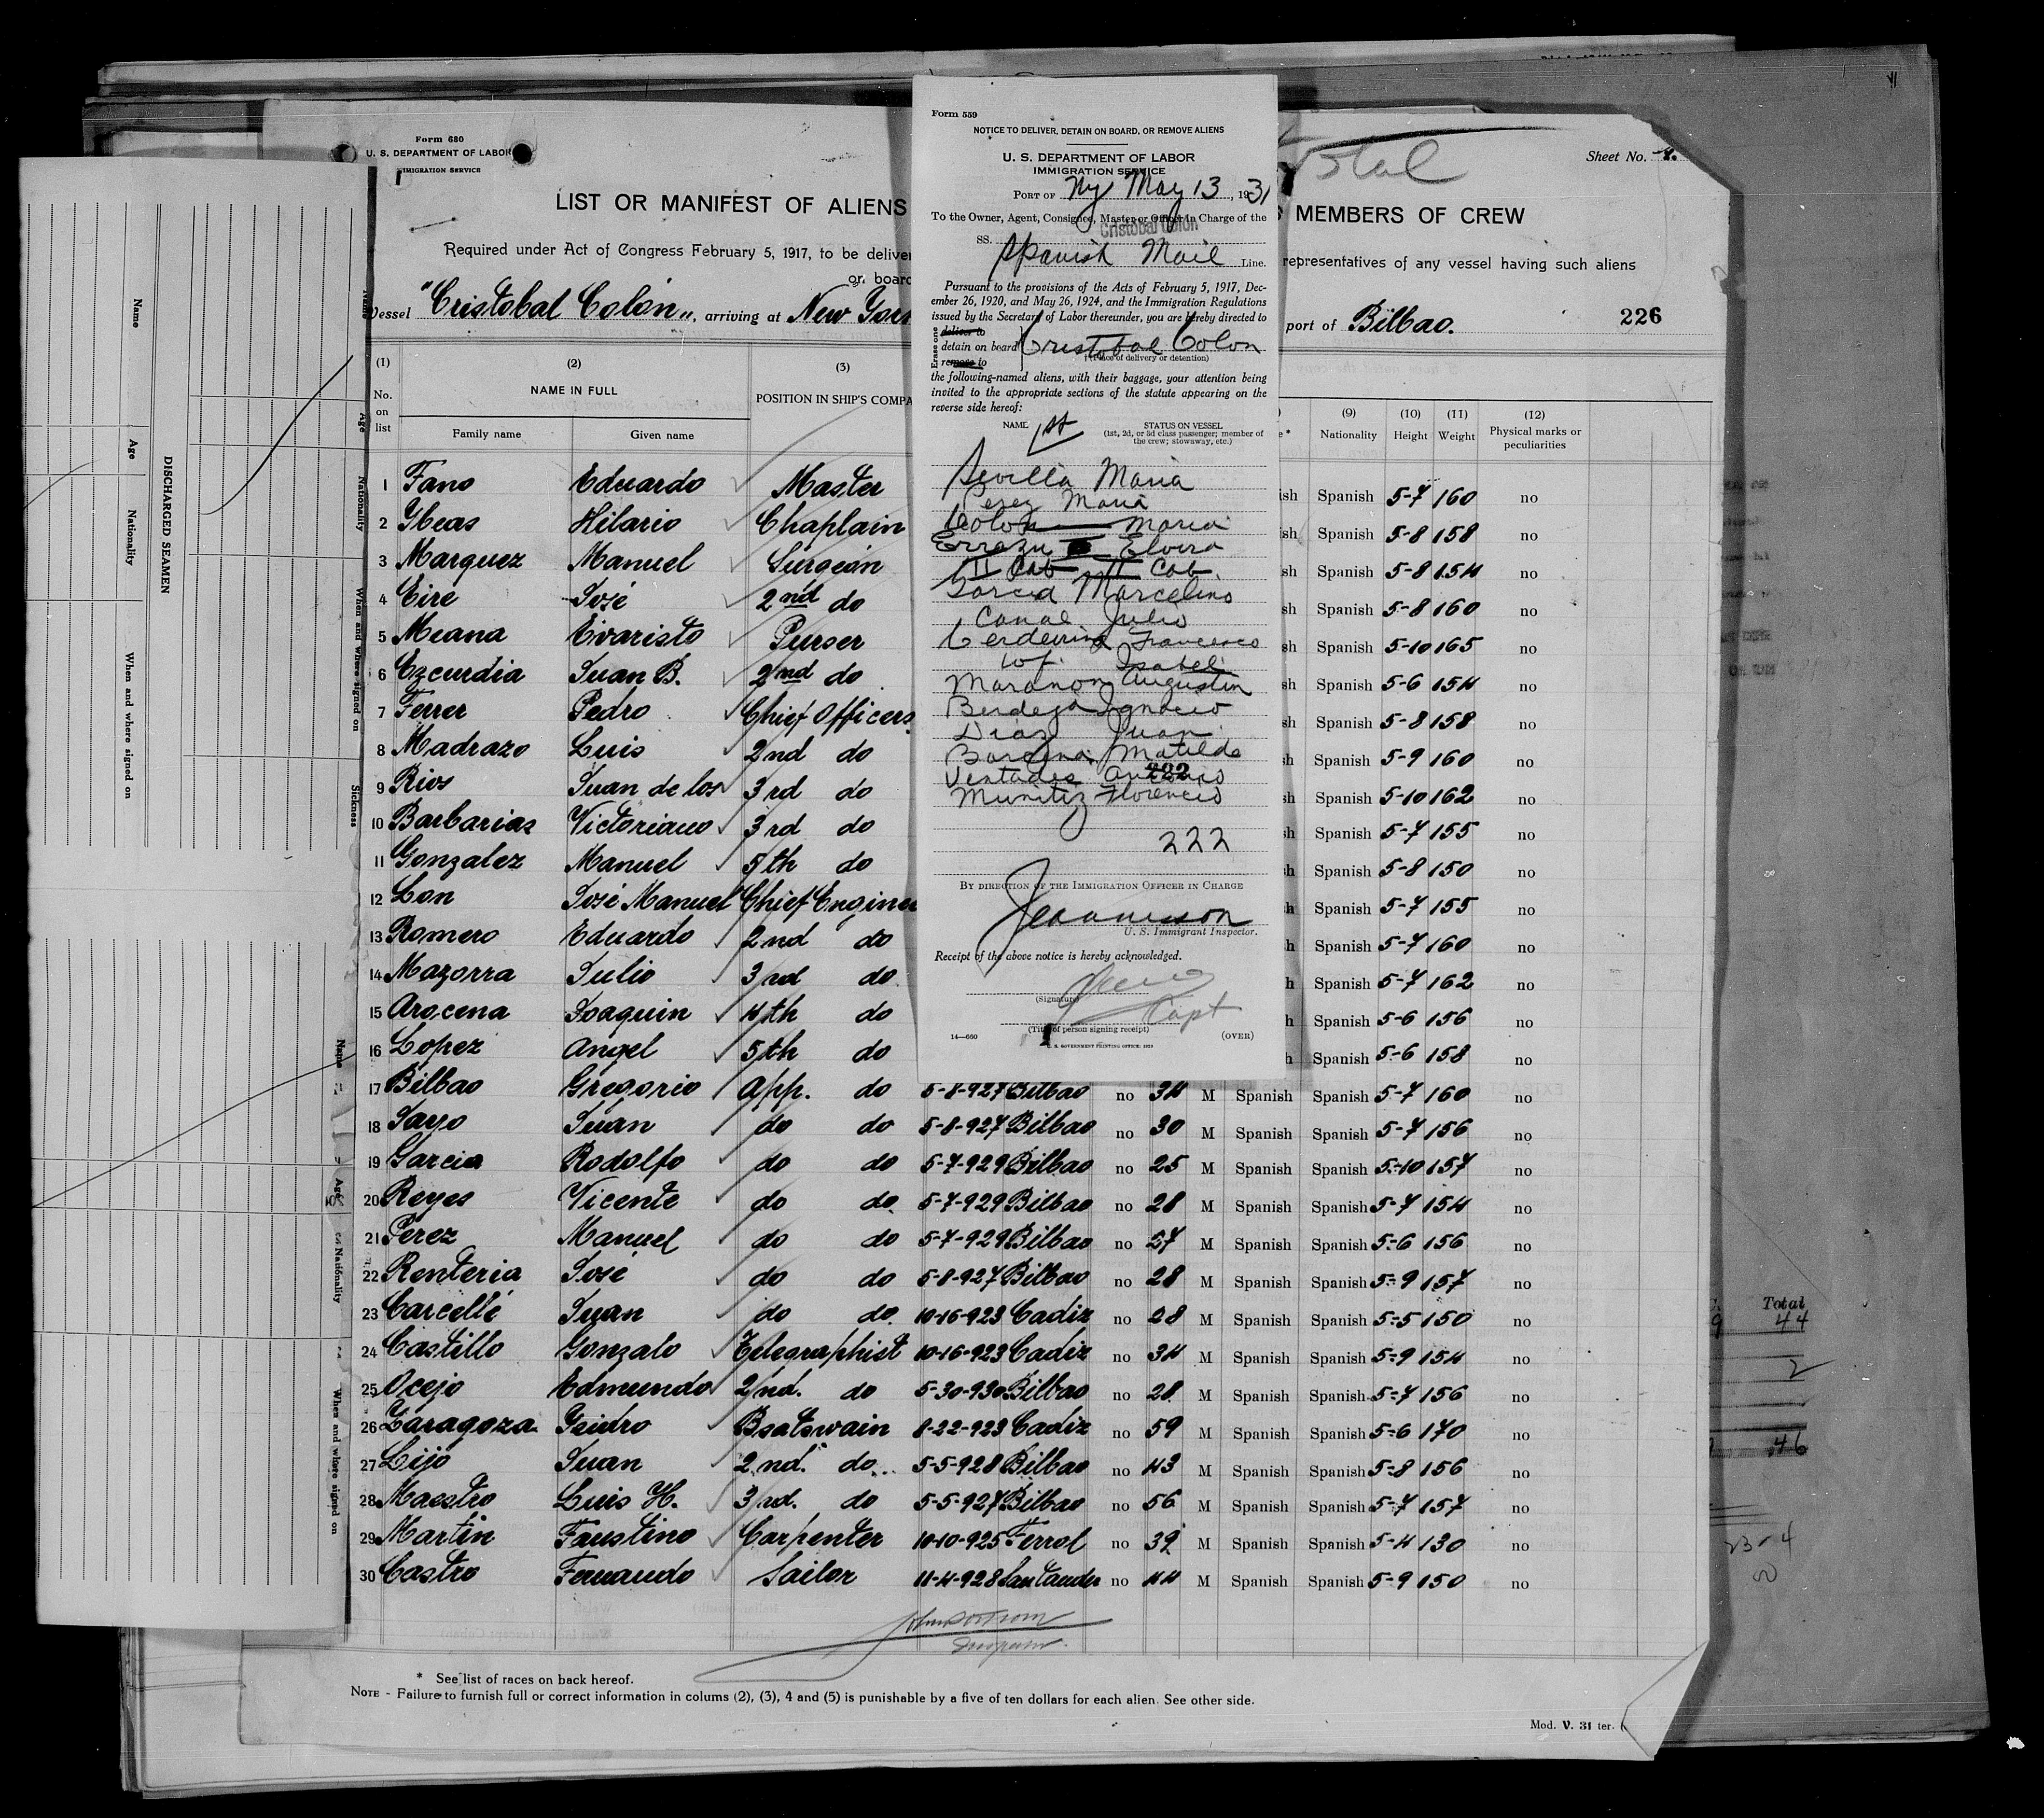 Form 680
U. S. DEPARTMENT OF LABOR
IMIGRATION SERVICE
LIST OR MANIFEST OF ALIENS
MEMBERS OF CREW
Sheet No.
Required under Act of Congress February 5, 1917, to be deliver
representatives of any vessel having such aliens
or board
Vessel "Cristobal Colón", arriving at New York
port of Bilbao.
226
(1) (2) (3) (9) (10) (11) (12)
No. on list
NAME IN FULL
Family name Given name
POSITION IN SHIP'S COMPA
Nationality Height Weight Physical marks or peculiarities
1 Fano Eduardo Master Spanish 5-7 160 no
2 Ybeas Hilario Chaplain Spanish 5-8 158 no
3 Marquez Manuel Surgeón Spanish 5-8 154 no
4 Eire José 2nd do Spanish 5-8 160 no
5 Meana Evaristo Purser Spanish 5-10 165 no
6 Ezcurdia Juan B. 2nd do Spanish 5-6 154 no
7 Ferrer Pedro Chief Officers Spanish 5-8 158 no
8 Madrazo Luis 2nd do Spanish 5-9 160 no
9 Rios Juan de los 3rd do Spanish 5-10 162 no
10 Barbarias Victoriano 3rd do Spanish 5-7 155 no
11 Gonzalez Manuel 5th do Spanish 5-8 150 no
12 Lon José Manuel Chief Enginee Spanish 5-7 155 no
13 Romero Eduardo 2nd do Spanish 5-7 160 no
14 Mazorra Julio 3rd do Spanish 5-7 162 no
15 Arocena Joaquin 4th do Spanish 5-6 156 no
16 Lopez Angel 5th do Spanish 5-6 158 no
17 Bilbao Gregorio App. do 5-8-927 Bilbao no 34 M Spanish Spanish 5-7 160 no
18 Sayo Juan do do 5-8-927 Bilbao no 30 M Spanish Spanish 5-7 156 no
19 Garcia Rodolfo do do 5-7-929 Bilbao no 25 M Spanish Spanish 5-10 157 no
20 Reyes Vicente do do 5-7-929 Bilbao no 28 M Spanish Spanish 5-7 154 no
21 Perez Manuel do do 5-7-929 Bilbao no 27 M Spanish Spanish 5-6 156 no
22 Renteria José do do 5-8-927 Bilbao no 28 M Spanish Spanish 5-9 157 no
23 Carcellé Juan do do 10-16-923 Cadiz no 28 M Spanish Spanish 5-5 150 no
24 Castillo Gonzalo Telegraphist 10-16-923 Cadiz no 34 M Spanish Spanish 5-9 154 no
25 Ocejo Edmundo 2nd. do 5-30-930 Bilbao no 28 M Spanish Spanish 5-7 156 no
26 Zaragoza Ysidro Boatswain 8-22-923 Cadiz no 59 M Spanish Spanish 5-6 170 no
27 Lijo Juan 2nd. do 5-5-928 Bilbao no 43 M Spanish Spanish 5-8 156 no
28 Maestro Luis H. 3rd. do 5-5-927 Bilbao no 56 M Spanish Spanish 5-7 157 no
29 Martin Faustino Carpenter 10-10-925 Ferrol no 39 M Spanish Spanish 5-4 130 no
30 Castro Fernando Sailor 11-4-928 Santander no 44 M Spanish Spanish 5-9 150 no
* See list of races on back hereof.
NOTE - Failure to furnish full or correct information in colums (2), (3), 4 and (5) is punishable by a five of ten dollars for each alien. See other side.
Mod. V. 31 ter.
Form 559
NOTICE TO DELIVER, DETAIN ON BOARD, OR REMOVE ALIENS
U. S. DEPARTMENT OF LABOR
IMMIGRATION SERVICE
PORT OF NY May 13, 1931
To the Owner, Agent, Consignee, Master or Officer in Charge of the
Cristobal Colon
SS. Spanish Mail Line.
Pursuant to the provisions of the Acts of February 5, 1917, Dec-
ember 26, 1920, and May 26, 1924, and the Immigration Regulations
issued by the Secretary of Labor thereunder, you are hereby directed to
Erase one
deliver to
detain on board Cristobal Colon
remove to
(Place of delivery or detention)
the following-named aliens, with their baggage, your attention being
invited to the appropriate sections of the statute appearing on the
reverse side hereof:
NAME STATUS ON VESSEL
1st
(1st, 2d, or 3d class passenger; member of
the crew; stowaway, etc.)
Sevilla Maria
Perez Maria
Colon Maria
Errazu Elvira
II Cab II Cab.
Garcia Marcelino
Canal Julio
Cerdeirina Francesco
wf. Isabel
Maranon Augustin
Berdeja Ignacio
Diaz Juan
Barcena Matilde
Ventades Antonio
Munitiz Florencio
222
BY DIRECTION OF THE IMMIGRATION OFFICER IN CHARGE
U. S. Immigrant Inspector.
Receipt of the above notice is hereby acknowledged.
(Signature)
Capt
(Title of person signing receipt)
14—660
(OVER)
U. S. GOVERNMENT PRINTING OFFICE: 1929
DISCHARGED SEAMEN
Name
Age
Nationality
When and where signed on
Name
Age
Nationality
When and where signed on
Sickness
Name
Age
Nationality
When and where signed on
Total
44
2
46